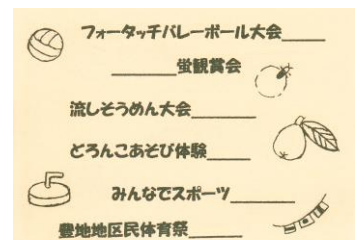 フォータッチバレーボール大会_____
________蛍観賞会
流しそうめん大会________
どろんこあそび体験_____
みんなでスポーツ________
豊地地区民体育祭_______